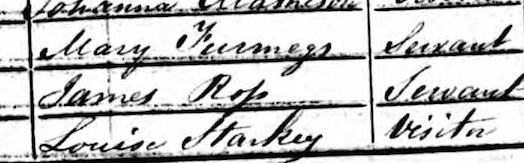 Johanna
Mary Furmegs Servant
James Ross Servant
Louise Starkey Visitor